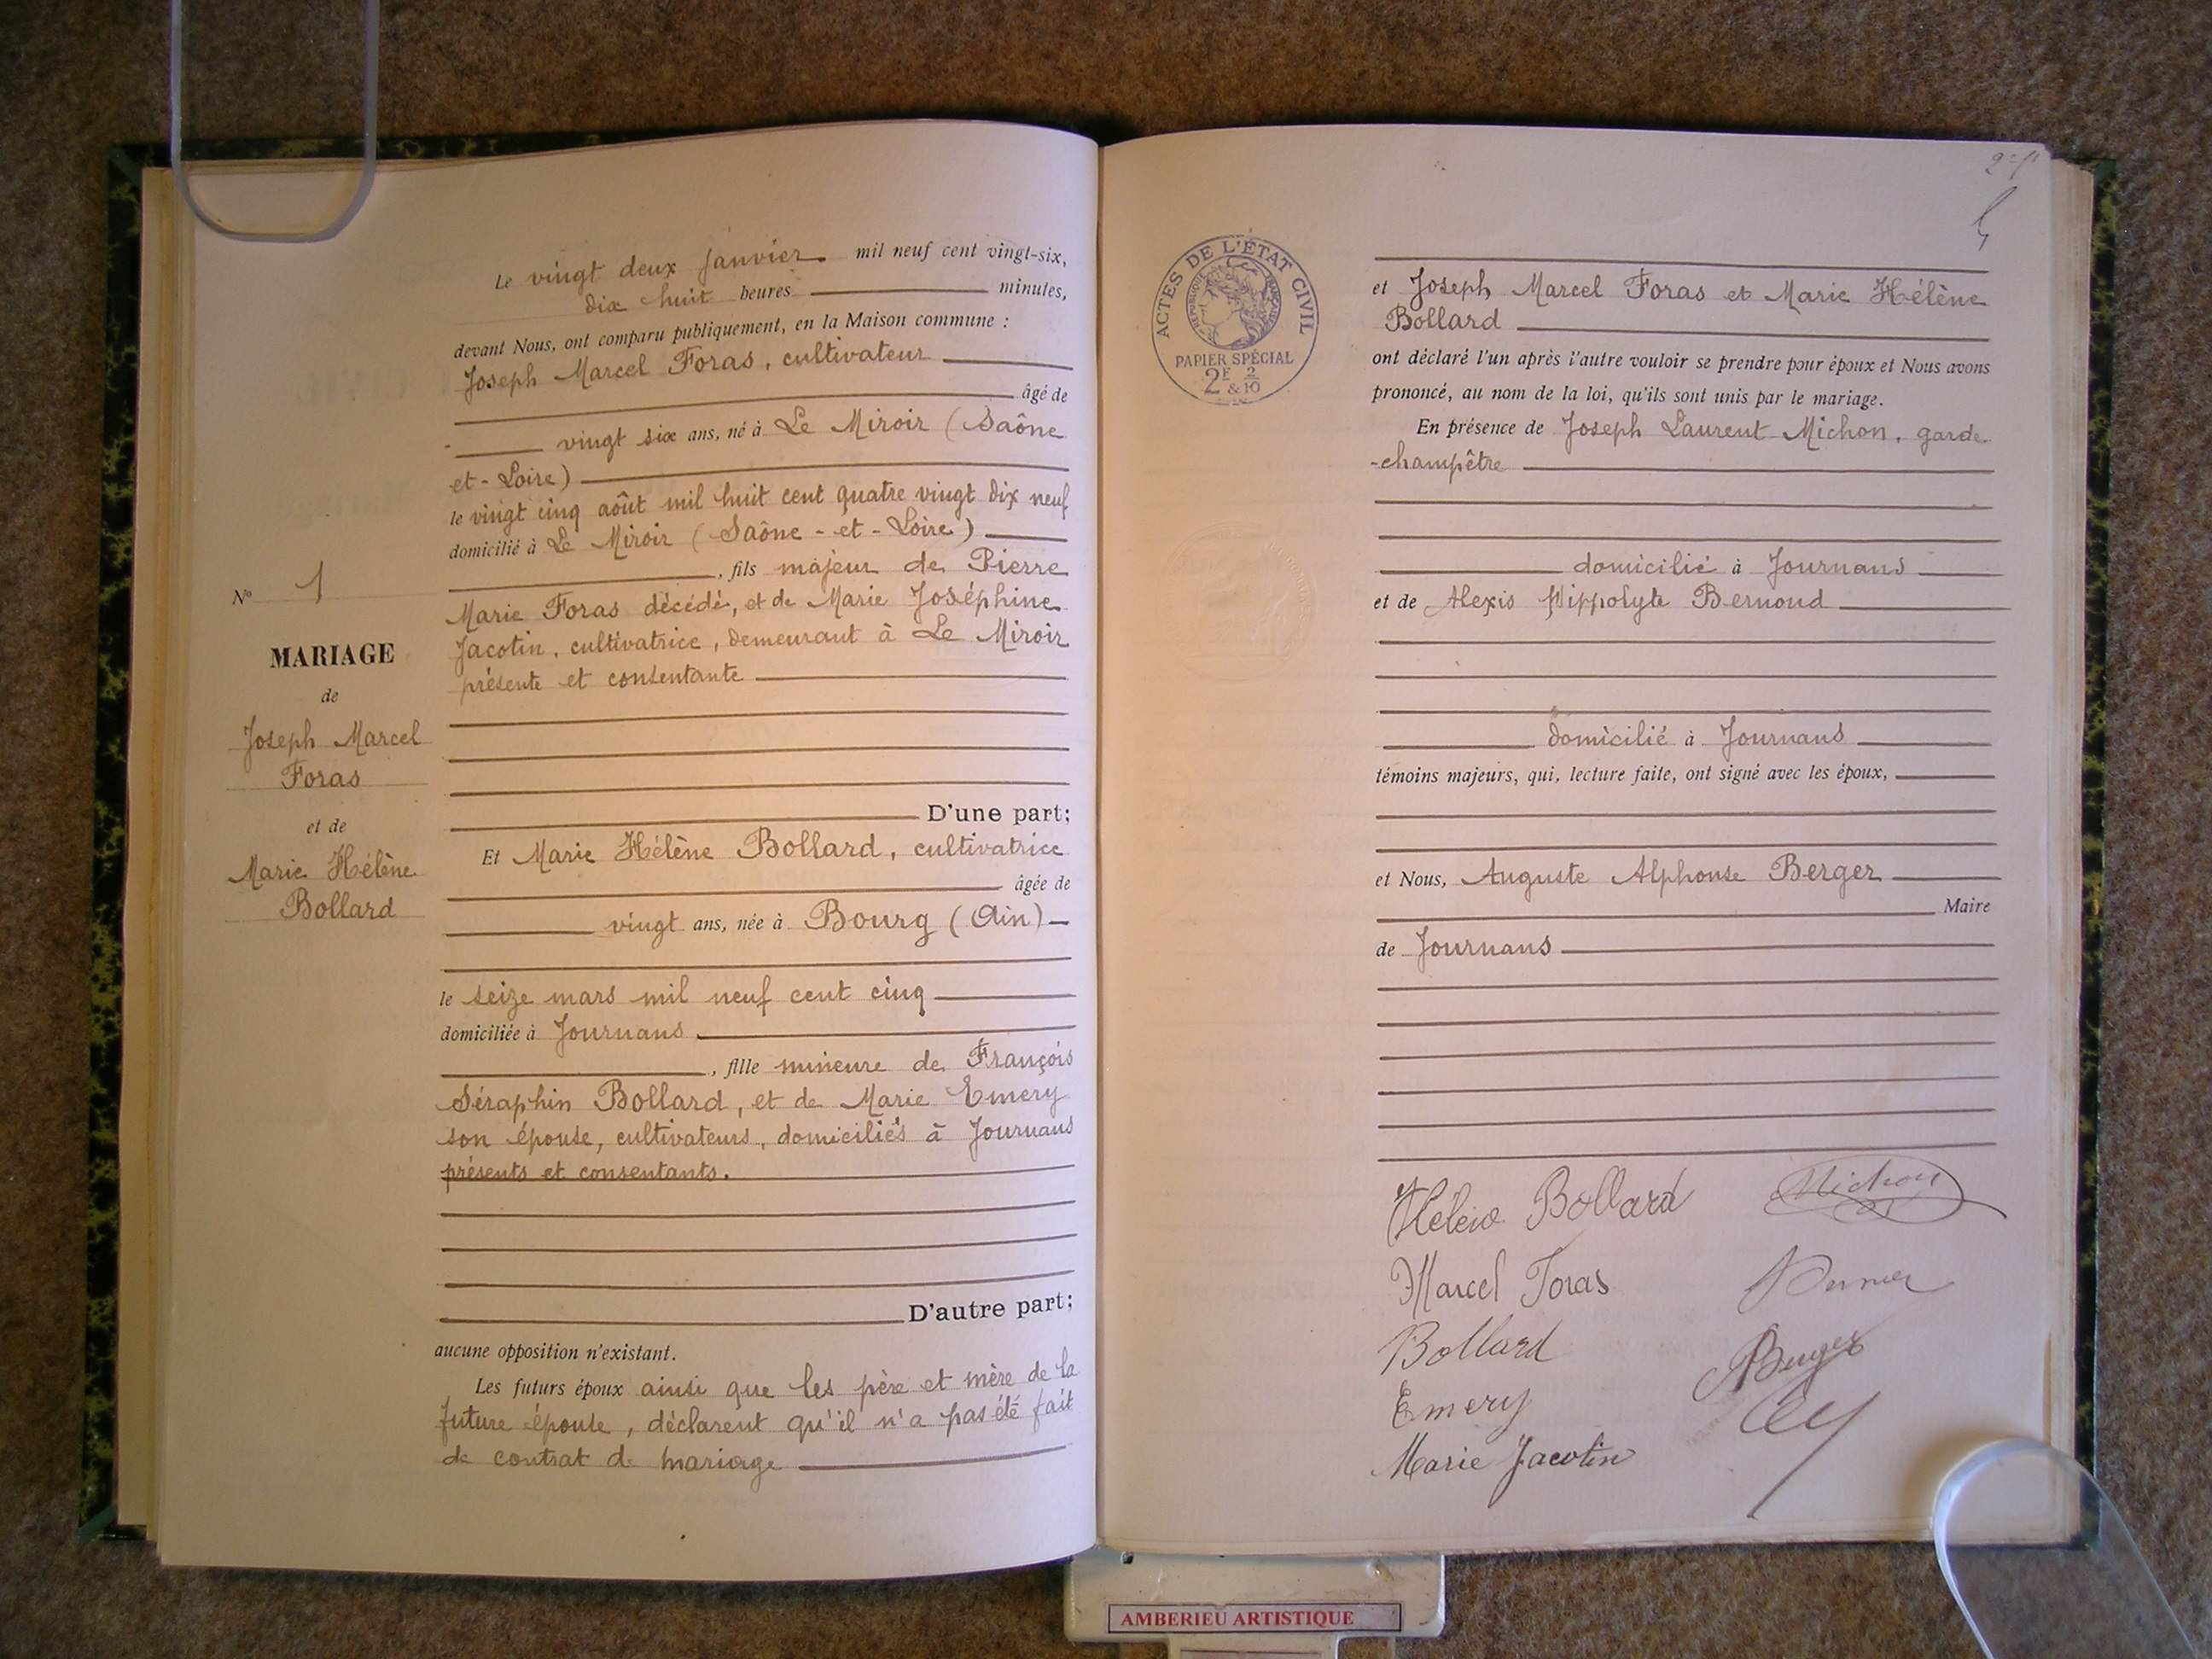 Le vingt deux janvier mil neuf cent vingt-six,
dix huit heures minutes,
devant Nous, ont comparu publiquement, en la Maison commune :
Joseph Marcel Foras, cultivateur
âgé de
vingt six ans, né à Le Miroir (Saône
et-Loire)
le vingt cinq août mil huit cent quatre vingt dix neuf
domicilié à Le Miroir (Saône-et-Loire)
, fils majeur de Pierre
Marie Foras décédé, et de Marie Joséphine
Jacotin, cultivatrice, demeurant à Le Miroir
présente et consentante
N° 1
MARIAGE
de
Joseph Marcel
Foras
et de
Marie Hélène
Bollard
D'une part;
Et Marie Hélène Bollard, cultivatrice
âgée de
vingt ans, née à Bourg (Ain)
le seize mars mil neuf cent cinq
domiciliée à Journans
, fille mineure de François
Séraphin Bollard, et de Marie Emery
son épouse, cultivateurs, domiciliés à Journans
présents et consentants.
D'autre part;
aucune opposition n'existant.
Les futurs époux ainsi que les père et mère de la
future épouse, déclarent qu'il n'a pas été fait
de contrat de mariage
ACTES DE L'ÉTAT CIVIL
RÉPUBLIQUE FRANÇAISE
PAPIER SPÉCIAL
2F 2
& 10
et Joseph Marcel Foras et Marie Hélène
Bollard
ont déclaré l'un après l'autre vouloir se prendre pour époux et Nous avons
prononcé, au nom de la loi, qu'ils sont unis par le mariage.
En présence de Joseph Laurent Michon, garde
-champêtre
domicilié à Journans
et de Alexis Hippolyte Bernoud
domicilié à Journans
témoins majeurs, qui, lecture faite, ont signé avec les époux,
et Nous, Auguste Alphonse Berger
Maire
de Journans
Hélène Bollard
Michon
Marcel Foras
Bollard
Berger
Emery
Marie Jacotin
AMBERIEU ARTISTIQUE